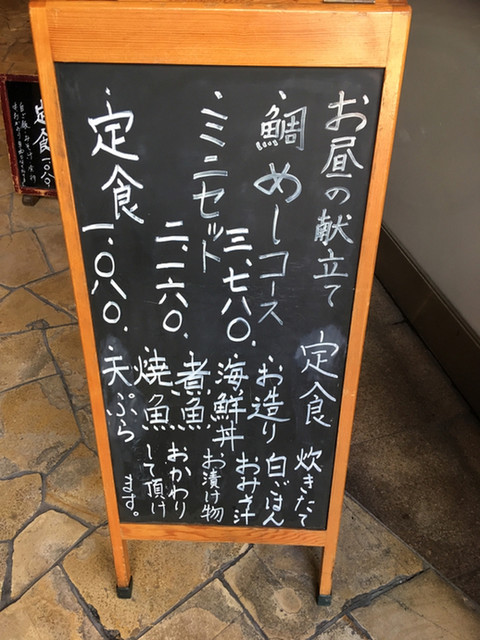 お昼の献立て
・鯛めしコース
三、七八〇.
・ミニセット
二、一六〇.
・定食
一、〇八〇.
定食
・お造り
・海鮮丼
・煮魚
・焼魚
・天ぷら
炊きたて
白ごはん
おみそ汁
お漬け物
おかわり
して頂け
ます。
定食 一、〇八〇